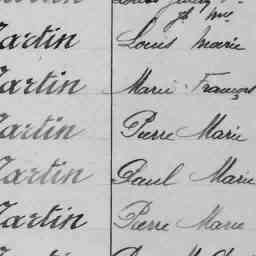 Martin Louis Marie
Martin Marie François
Martin Pierre Marie
Martin Paul Marie
Martin Pierre Marie